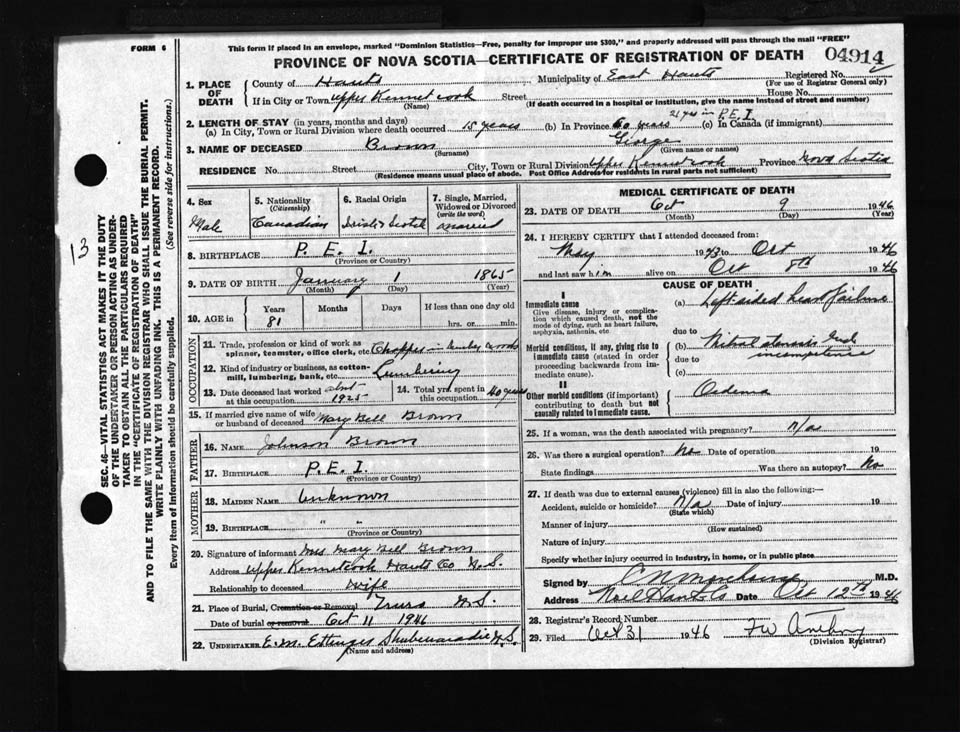 This form if placed in an envelope, marked "Dominion Statistics—Free, penalty for improper use $300," and properly addressed will pass through the mail "FREE"
FORM 6
PROVINCE OF NOVA SCOTIA—CERTIFICATE OF REGISTRATION OF DEATH
04914
1. PLACE OF DEATH
County of Hants Municipality of East Hants Registered No.
(For use of Registrar General only)
If in City or Town Upper Kennetcook Street House No.
(Name) (If death occurred in a hospital or institution, give the name instead of street and number)
2. LENGTH OF STAY (in years, months and days)
21 yrs in P.E.I.
(a) In City, Town or Rural Division where death occurred 15 years (b) In Province 60 years (c) In Canada (if immigrant)
3. NAME OF DECEASED Brown George
(Surname) (Given name or names)
RESIDENCE No. Street City, Town or Rural Division Upper Kennetcook Province Nova Scotia
(Residence means usual place of abode. Post Office Address for residents in rural parts not sufficient)
4. Sex
Male
5. Nationality (Citizenship)
Canadian
6. Racial Origin
Irish & Scotch
7. Single, Married, Widowed or Divorced (write the word)
Married
8. BIRTHPLACE P.E.I.
(Province or Country)
9. DATE OF BIRTH January 1 1865
(Month) (Day) (Year)
10. AGE in Years Months Days If less than one day old
81 hrs. or min.
OCCUPATION
11. Trade, profession or kind of work as spinner, teamster, office clerk, etc. Chopper in lumber woods
12. Kind of industry or business, as cotton-mill, lumbering, bank, etc. Lumbering
13. Date deceased last worked at this occupation abt 1925
14. Total yrs. spent in this occupation 40 years
15. If married give name of wife or husband of deceased Mary Bell Brown
FATHER
16. NAME Johnson Brown
17. BIRTHPLACE P.E.I.
(Province or Country)
MOTHER
18. MAIDEN NAME Unknown
19. BIRTHPLACE " "
(Province or Country)
20. Signature of informant Mrs Mary Bell Brown
Address Upper Kennetcook Hants Co N.S.
Relationship to deceased Wife
21. Place of Burial, Cremation or Removal Truro N.S.
Date of burial or removal Oct 11 1946
22. UNDERTAKER E.M. Ettinger Shubenacadie N.S.
(Name and address)
MEDICAL CERTIFICATE OF DEATH
23. DATE OF DEATH Oct 9 1946
(Month) (Day) (Year)
24. I HEREBY CERTIFY that I attended deceased from:
May 1943 to Oct 1946
and last saw him alive on Oct 8th 1946
CAUSE OF DEATH
I
Immediate cause
Give disease, injury or complication which caused death, not the mode of dying, such as heart failure, asphyxia, asthenia, etc.
(a) Left-sided heart failure
due to
Morbid conditions, if any, giving rise to immediate cause (stated in order proceeding backwards from immediate cause).
(b) Mitral stenosis and incompetence
due to
(c)
II
Other morbid conditions (if important) contributing to death but not causally related to immediate cause.
Odema
25. If a woman, was the death associated with pregnancy? N/a
26. Was there a surgical operation? No Date of operation 19
State findings Was there an autopsy? No
27. If death was due to external causes (violence) fill in also the following:—
Accident, suicide or homicide? N/a Date of injury 19
(State which)
Manner of injury
(How sustained)
Nature of injury
Specify whether injury occurred in industry, in home, or in public place
Signed by M.D.
Address Noel Hants Co Date Oct 12th 1946
28. Registrar's Record Number
29. Filed Oct 31 1946 FW Anthony
(Division Registrar)
13
SEC. 46—VITAL STATISTICS ACT MAKES IT THE DUTY
OF THE UNDERTAKER OR PERSON ACTING AS UNDER-
TAKER TO OBTAIN ALL THE PARTICULARS REQUIRED
IN THE "CERTIFICATE OF REGISTRATION OF DEATH"
AND TO FILE THE SAME WITH THE DIVISION REGISTRAR WHO SHALL ISSUE THE BURIAL PERMIT.
WRITE PLAINLY WITH UNFADING INK. THIS IS A PERMANENT RECORD.
Every item of Information should be carefully supplied. (See reverse side for instructions.)